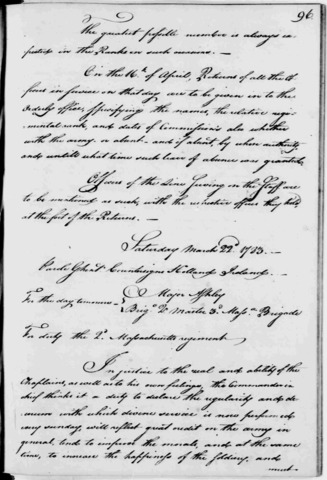 96
The greatest possible number is always ex-
pected in the Ranks on such occasions. —
On the 16th of April, Returns of all the Of-
ficers in service on that day are to be given in to the
Orderly office, specifying the names, the relative regi-
mental rank, and dates of Commissions also whether
with the army or absent - and if absent, by whose authority
and untill what time such leave of absence was granted.
Officers of the Line serving on the Staff are
to be mentioned as such, with the respective offices they hold,
at the foot of the Returns. —
Saturday March 22d 1783.
Parole Ghent Countersigns Holland Ireland. —
For the day tomorrow — Major Ashley
Brigd Qr Master 3d Massts Brigade
For duty the 2d Massachusetts regiment.
In justice to the zeal and ability of the
Chaplains, as well as to his own feelings, the Commander in
chief thinks it a duty to declare the regularity and de-
corum with which divine service is now performed
every sunday, will reflect great credit on the army in
general, tend to improve the morals, and at the same
time, to increase the happiness of the soldiery, and
must -